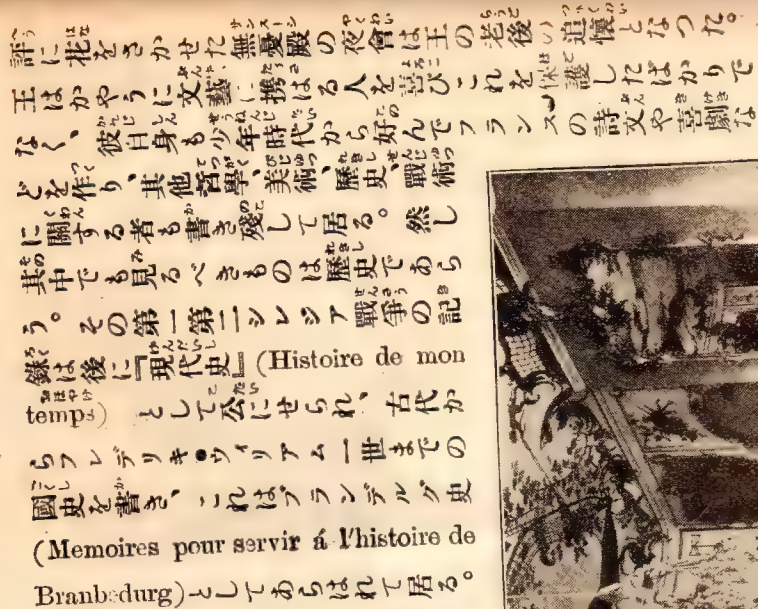 評に花をさかせた無憂殿の夜會は王の老後の追懷となつた。
王はかやうに文藝に携はる人を喜びこれを保護したばかりで
なく、彼自身も少年時代から好んでフランスの詩文や喜劇な
どを作り、其他哲學、美術、歷史、戰術
に關する者も書き殘して居る。然し
其中でも見るべきものは歷史であら
う。その第一第二シレジア戰爭の記
錄は後に『現代史』(Histoire de mon
temps) として公にせられ、古代か
らフレデリキ・ウィリアム一世までの
國史を書き、これはブランデルグ史
(Memoires pour servir á l'histoire de
Branbedurg)としてあらはれて居る。